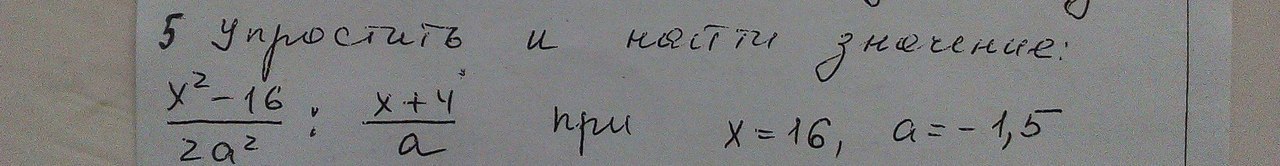 5 Упростить и найти значение:
x² - 16 / 2a² : x + 4 / a при x = 16, a = - 1,5